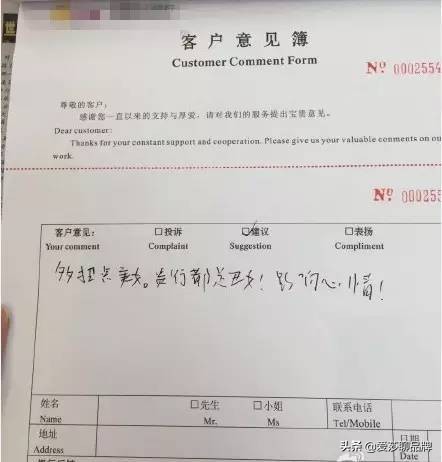 世
客户意见簿
Customer Comment Form
Nº 0002554
尊敬的客户：
感谢您一直以来的支持与厚爱，请对我们的服务提出宝贵意见。
Dear customer:
Thanks for your constant support and cooperation. Please give us your valuable comments on ou
work.
Nº 000255
客户意见： □投诉 ☑建议 □表扬
Your comment Complaint Suggestion Compliment
多招点美女。贵行都是丑女！影响心情！
姓名 □先生 □小姐 联系电话
Name Mr. Ms Tel/Mobile
地址 日期
Address
头条 @爱莎聊品牌